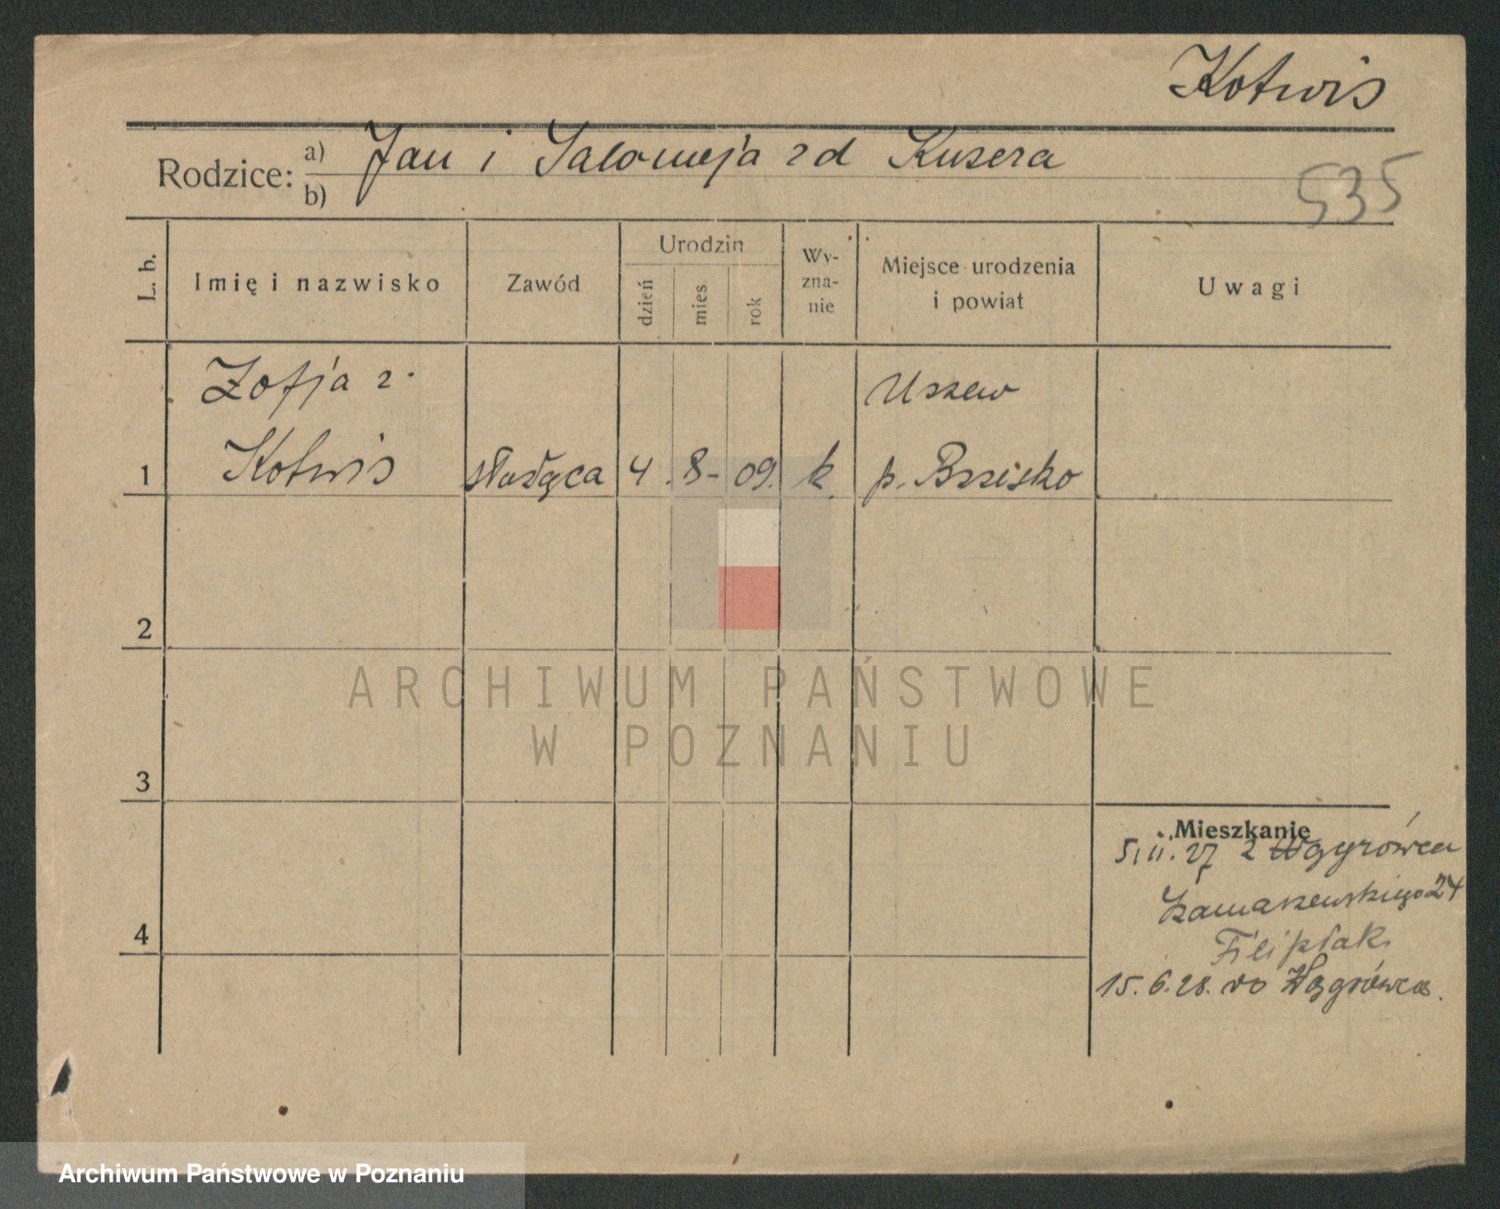 Kotwis
Rodzice: a) Jan i Salomeja zd Kusera
b)
535
L. b.
Imię i nazwisko
Zawód
Urodzin
dzień
mies
rok
Wy-
zna-
nie
Miejsce urodzenia
i powiat
Uwagi
Zofja z.
Uszew
1 Kotwis służąca 4. 8- 09. k. p. Brzisko
2
3
4
Mieszkanie
5.11.27 z Wągrówca
24
Filipiak
15.6.28. do Wągrówca.
ARCHIWUM PAŃSTWOWE
W POZNANIU
Archiwum Państwowe w Poznaniu